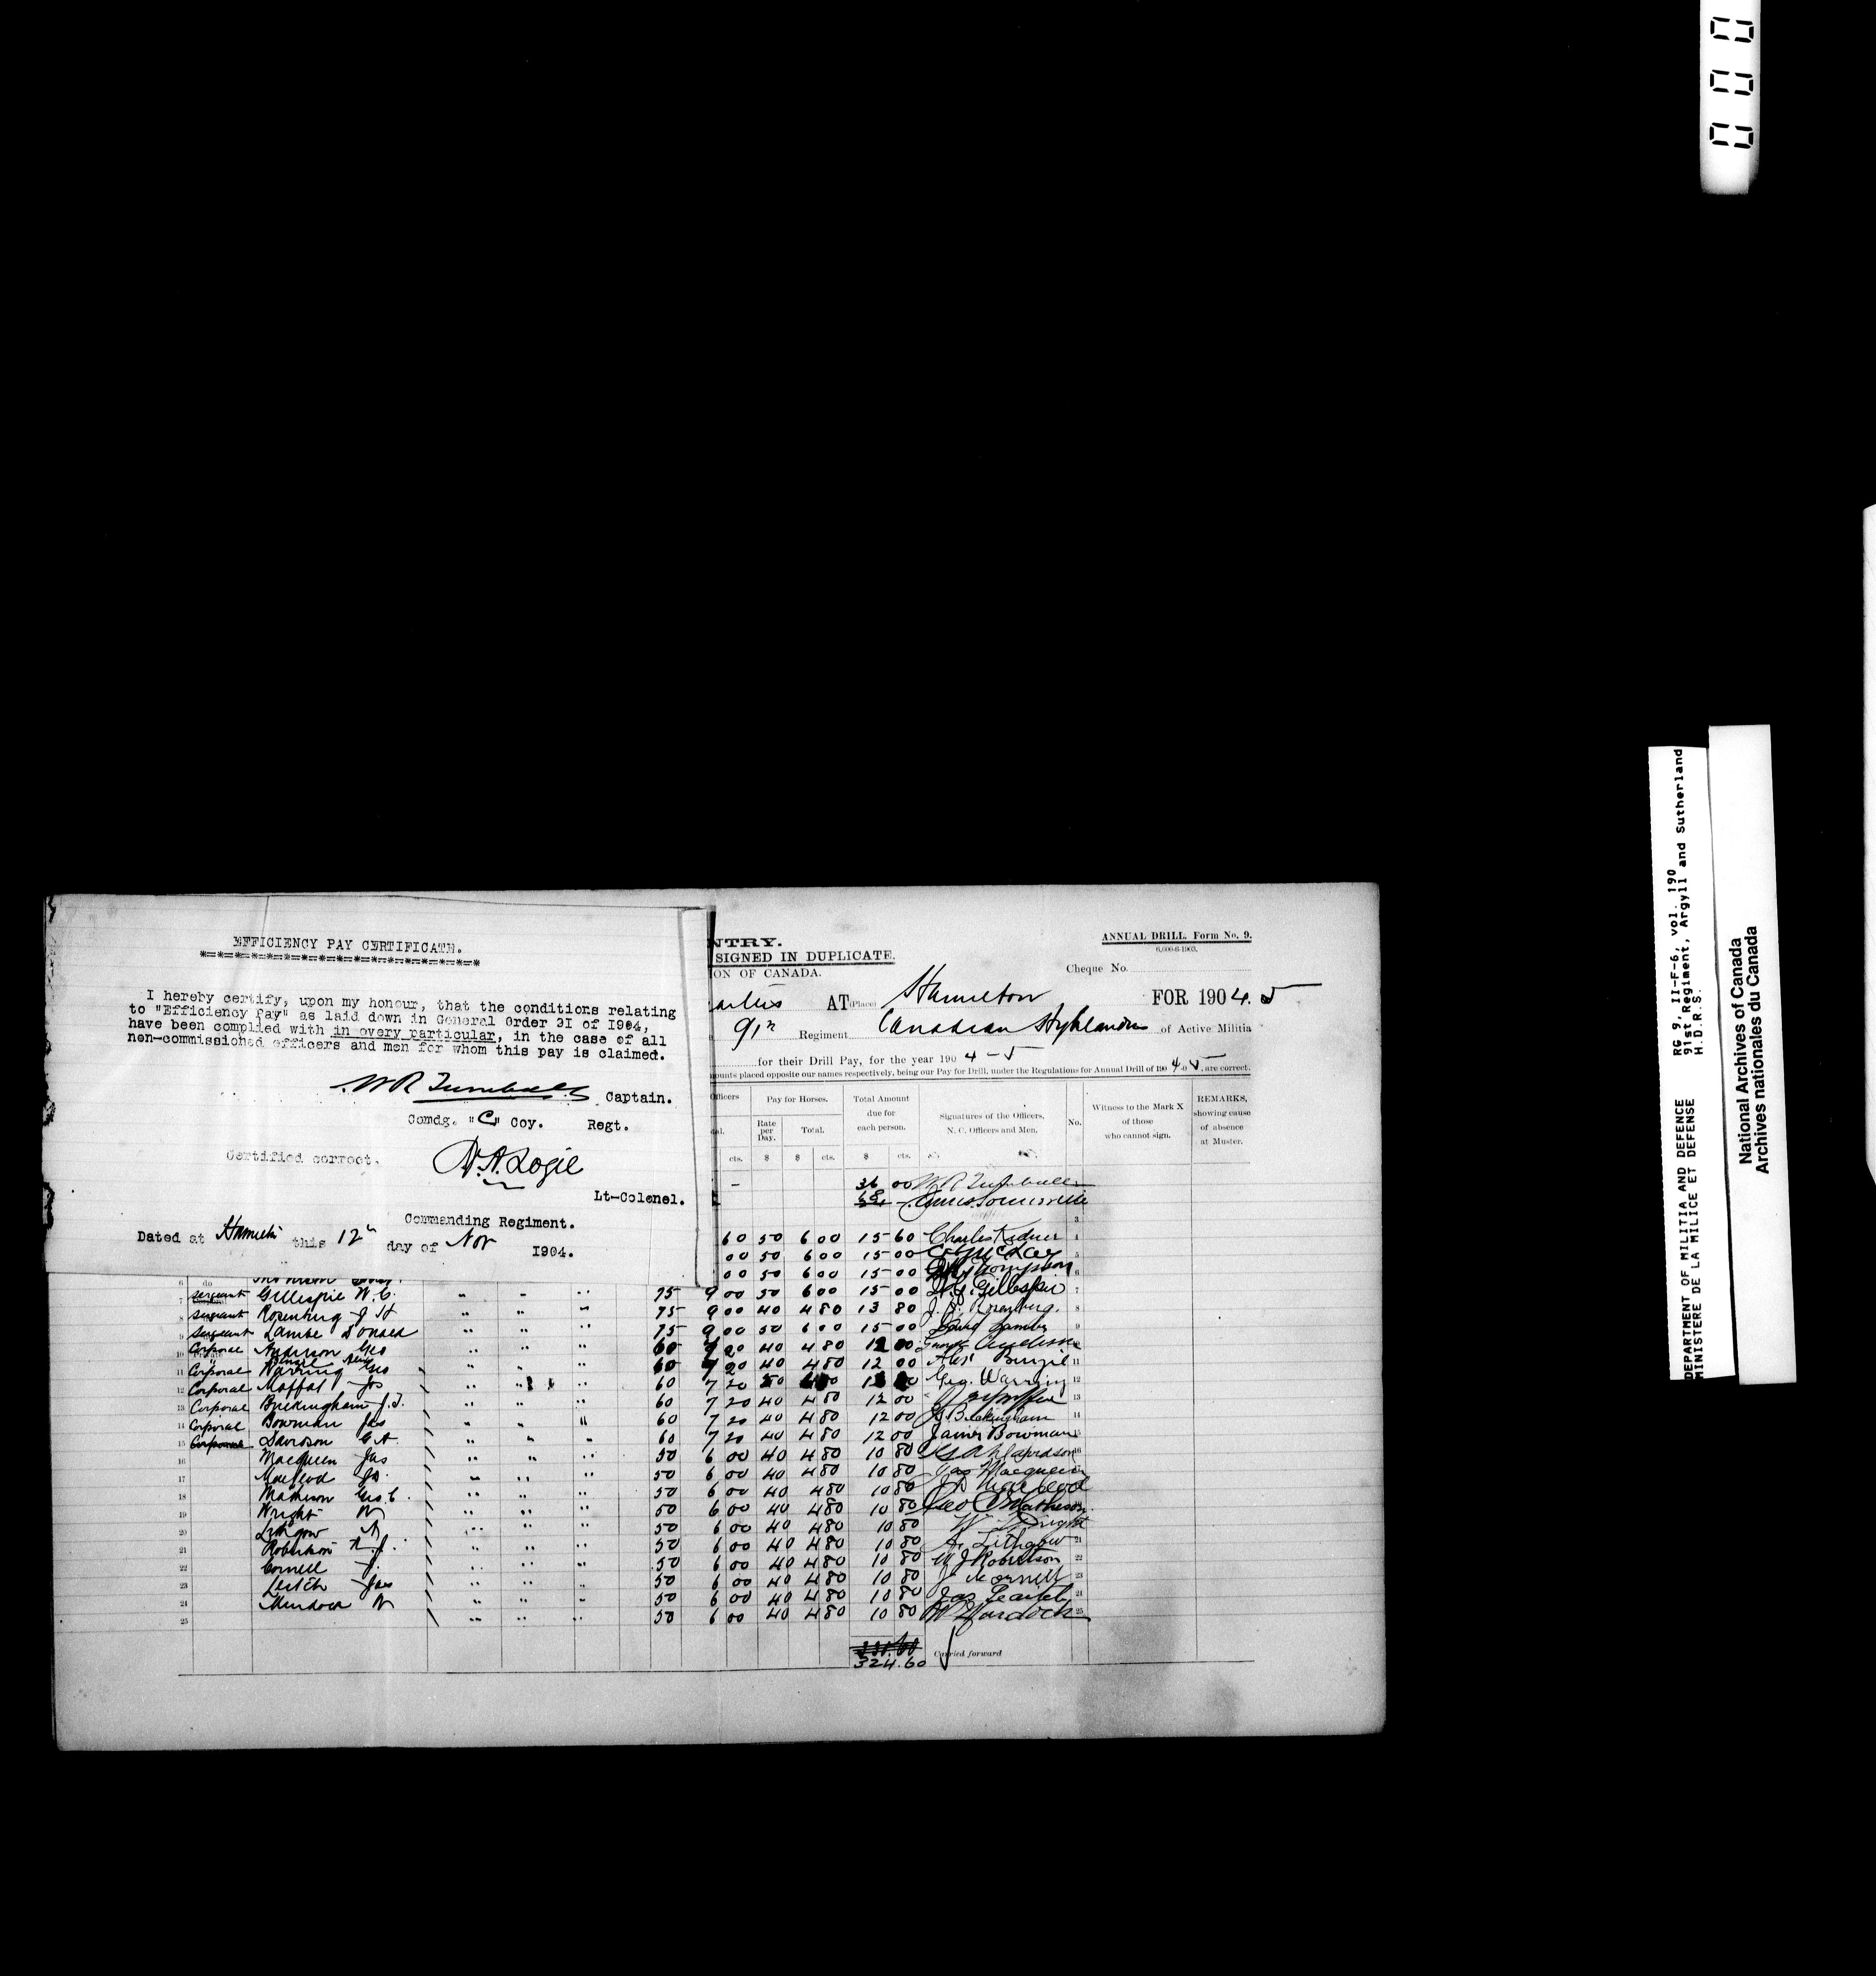 EFFICIENCY PAY CERTIFICATE.
I hereby certify, upon my honour, that the conditions relating
to "Efficiency Pay" as laid down in General Order 31 of 1904,
have been complied with in every particular, in the case of all
non-commissioned officers and men for whom this pay is claimed.
W R Turnbull Captain.
Comdg. "C" Coy. Regt.
Certified correct.
W. A. Logie
Lt-Colonel.
Commanding Regiment.
Dated at Hamilton this 12th day of Nov 1904.
NTRY.
SIGNED IN DUPLICATE.
ION OF CANADA.
ANNUAL DRILL. Form No. 9.
6,000-6-1903.
Cheque No.
AT (Place) Hamilton FOR 1904.5
91st Regiment Canadian Highlanders of Active Militia
for their Drill Pay, for the year 1904-5
mounts placed opposite our names respectively, being our Pay for Drill, under the Regulations for Annual Drill of 1904-5, are correct.
Officers
Pay for Horses.
Total Amount due for each person.
Signatures of the Officers, N. C. Officers and Men.
No.
Witness to the Mark X of those who cannot sign.
REMARKS, showing cause of absence at Muster.
Rate per Day.
Total.
cts. $ $ cts. $ cts.
36 00 W R Turnbull
James Somerville
3
60 50 6 00 15 60 Charles Kidner 4
00 50 6 00 15 00 5
6 do 00 50 6 00 15 00 Thompson 6
7 Sergeant Gillespie W. C. 75 9 00 50 6 00 15 00 Gillespie 7
8 Sergeant Rosenburg J H 75 9 00 40 4 80 13 80 J. H. Rosenburg. 8
9 Sergeant Lambe Donald 75 9 00 50 6 00 15 00 9
10 Corporal Anderson Geo 60 7 20 40 4 80 12 00 George Anderson
Alex 60 7 20 40 4 80 12 00 Alex 11
11 Corporal Warring Geo 60 7 20 Geo. Warring 12
12 Corporal Moffat Jos 60 7 20 40 4 80 12 00 13
13 Corporal Buckingham J. J. 60 7 20 40 4 80 12 00 Buckingham 14
14 Corporal Bowman Jas 60 7 20 40 4 80 12 00 James Bowman
15 Corporal Davidson G A. 50 6 00 40 4 80 10 80 Davidson 16
16 Macqueen Jas 50 6 00 40 4 80 10 80 Jas Macqueen
17 Macleod 50 6 00 40 4 80 10 80 Macleod
18 Matheson Geo C. 50 6 00 40 4 80 10 80 Geo C Matheson
19 Wright W 50 6 00 40 4 80 10 80 W Wright
20 Lithgow A 50 6 00 40 4 80 10 80 A. Lithgow 21
21 Robertson 50 6 00 40 4 80 10 80 W J Robertson 22
22 Cornell J. 50 6 00 40 4 80 10 80 J Cornell 23
23 Leitch Jas 50 6 00 40 4 80 10 80 Jas Leitch 24
24 Murdoch W 50 6 00 40 4 80 10 80 W Murdoch 25
25
324.60 Carried forward
000
DEPARTMENT OF MILITIA AND DEFENCE
MINISTERE DE LA MILICE ET DEFENSE
RG 9, II-F-6, vol. 190
91st Regiment, Argyll and Sutherland
H.D.R.S.
National Archives of Canada
Archives nationales du Canada